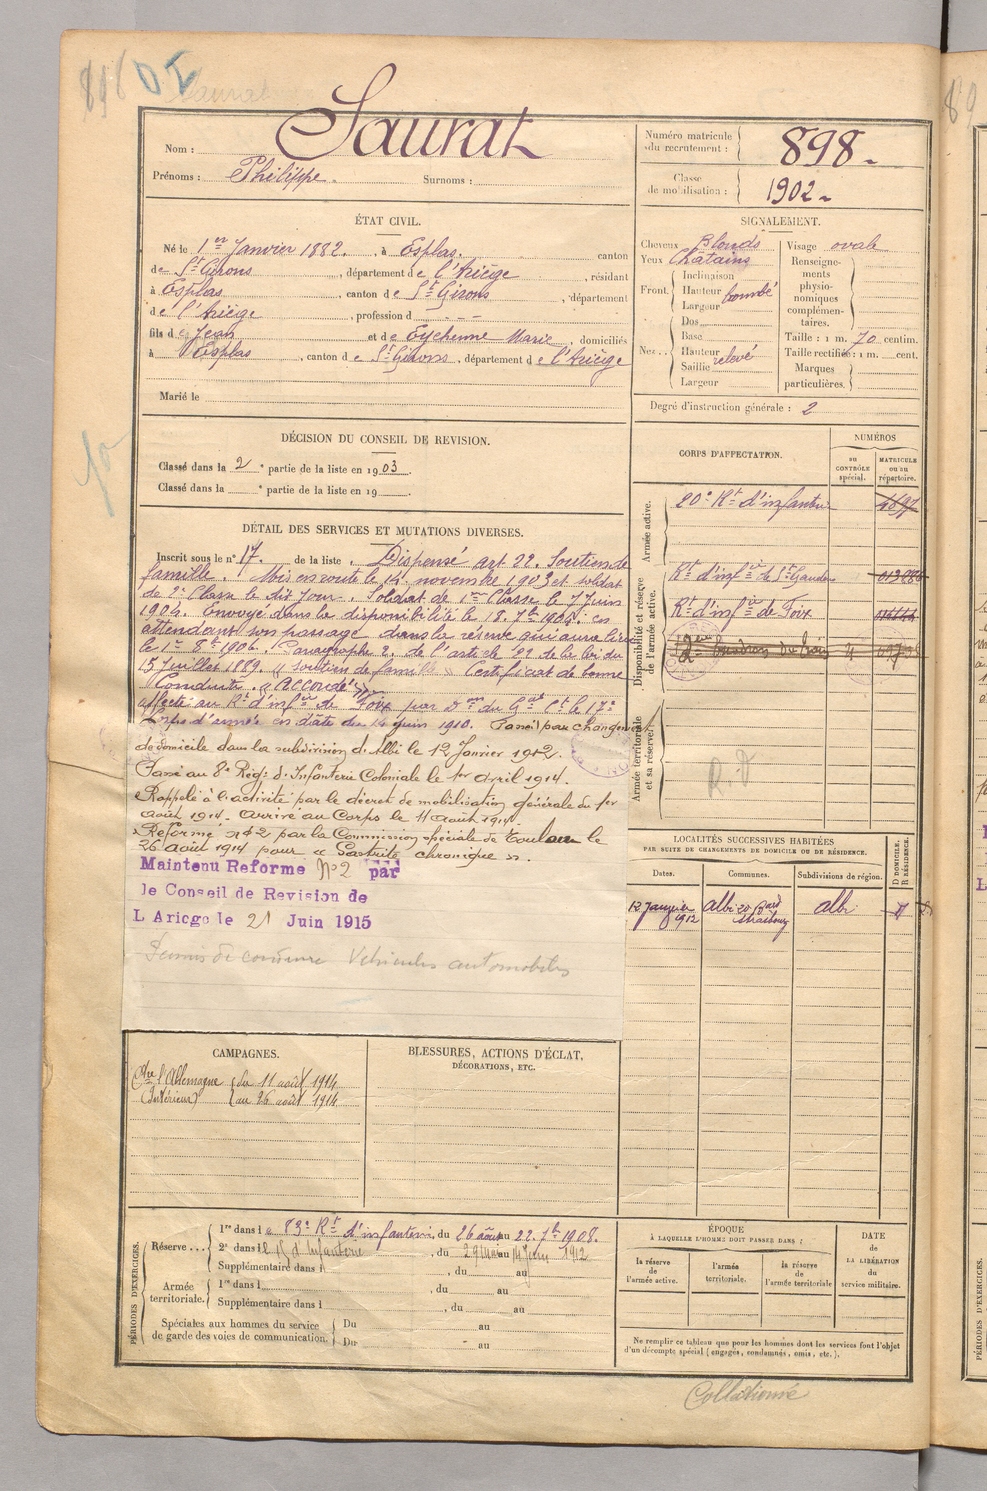 Nom : Saurat
Prénoms : Philippe. Surnoms :
Numéro matricule du recrutement : 898.
Classe de mobilisation : 1902.
ÉTAT CIVIL.
Né le 1er Janvier 1882. , à Esplas. canton
de St Girons , département de l'Ariège , résidant
à Esplas , canton de St Girons , département
de l'Ariège , profession d
fils de Jean et de Eychenne Marie , domiciliés
à Esplas , canton de St Girons , département de l'Ariège
Marié le
SIGNALEMENT.
Cheveux Blonds
Yeux Chatains
Front. Inclinaison
Hauteur bombé
Largeur
Nez.. Dos
Base
Hauteur relevé
Saillie
Largeur
Visage ovale
Renseignements physionomiques complémentaires.
Taille : 1 m. 70 centim.
Taille rectifiée : 1 m. cent.
Marques particulières.
Degré d'instruction générale : 2
DÉCISION DU CONSEIL DE REVISION.
Classé dans la 2e partie de la liste en 1903
Classé dans la e partie de la liste en 19
CORPS D'AFFECTATION.
NUMÉROS
au CONTRÔLE spécial.
MATRICULE ou au répertoire.
Armée active.
20e Rt d'infanterie
Disponibilité et réserve de l'armée active.
Rt d'infie de St Gaudens
Rt d'infie de Foix
Armée territoriale et sa réserve.
R.D
DÉTAIL DES SERVICES ET MUTATIONS DIVERSES.
Inscrit sous le n° 17. de la liste. Dispensé art. 22. Soutien de
famille. Mis en route le 14 novembre 1903 et soldat
de 2e Classe le dit jour. Soldat de 1ere Classe le 7 Juin
1904. Envoyé dans la disponibilité le 18 7bre 1904. en
attendant son passage dans la réserve qui aura lieu
le 1er 8bre 1906. Paragraphe 2. de l'article 22 de la loi du
15 Juillet 1889. "Soutien de famille" Certificat de bonne
Conduite "Accordé"
affecté au Rt d'infie de Foix par don du Gal Ct le 17e
Corps d'armée en date du 14 juin 1910. Passé par changement
de domicile dans la subdivision d'Albi le 12 Janvier 1912.
Passé au 8e Régt d'Infanterie Coloniale le 1er avril 1914.
Rappelé à l'activité par le décret de mobilisation générale du 1er
août 1914. arrivé au Corps le 11 août 1914.
Réformé n°2 par la Commission spéciale de Toulon le
26 août 1914 pour « Gastrite chronique ».
Maintenu Reforme N°2 par
le Conseil de Revision de
L Ariege le 21 Juin 1915
Permis de conduire Véhicules automobiles
LOCALITÉS SUCCESSIVES HABITÉES
PAR SUITE DE CHANGEMENTS DE DOMICILE OU DE RÉSIDENCE.
Dates. Communes. Subdivisions de région. D DOMICILE. R RÉSIDENCE.
12 Janvier 1912 Albi 20 Bard Strasbourg Albi
CAMPAGNES.
Ctre l'Allemagne (Intérieur) du 11 août 1914
au 26 août 1914
BLESSURES, ACTIONS D'ÉCLAT,
DÉCORATIONS, ETC.
PÉRIODES D'EXERCICES.
Réserve... 1re dans le 83e Rt d'infanterie, du 26 août au 22. 7bre 1908.
2e dans le Rt d'Infanterie , du 29 Mai au 14 Juin 1912
Supplémentaire dans l , du au
Armée territoriale. 1re dans l , du au
Supplémentaire dans l , du au
Spéciales aux hommes du service de garde des voies de communication. Du au
Du au
ÉPOQUE
À LAQUELLE L'HOMME DOIT PASSER DANS :
la réserve de l'armée active.
l'armée territoriale.
la réserve de l'armée territoriale
DATE de LA LIBÉRATION du service militaire.
Ne remplir ce tableau que pour les hommes dont les services font l'objet
d'un décompte spécial (engagés, condamnés, omis, etc.).
Collationné
PÉRIODES D'EXERCICES.